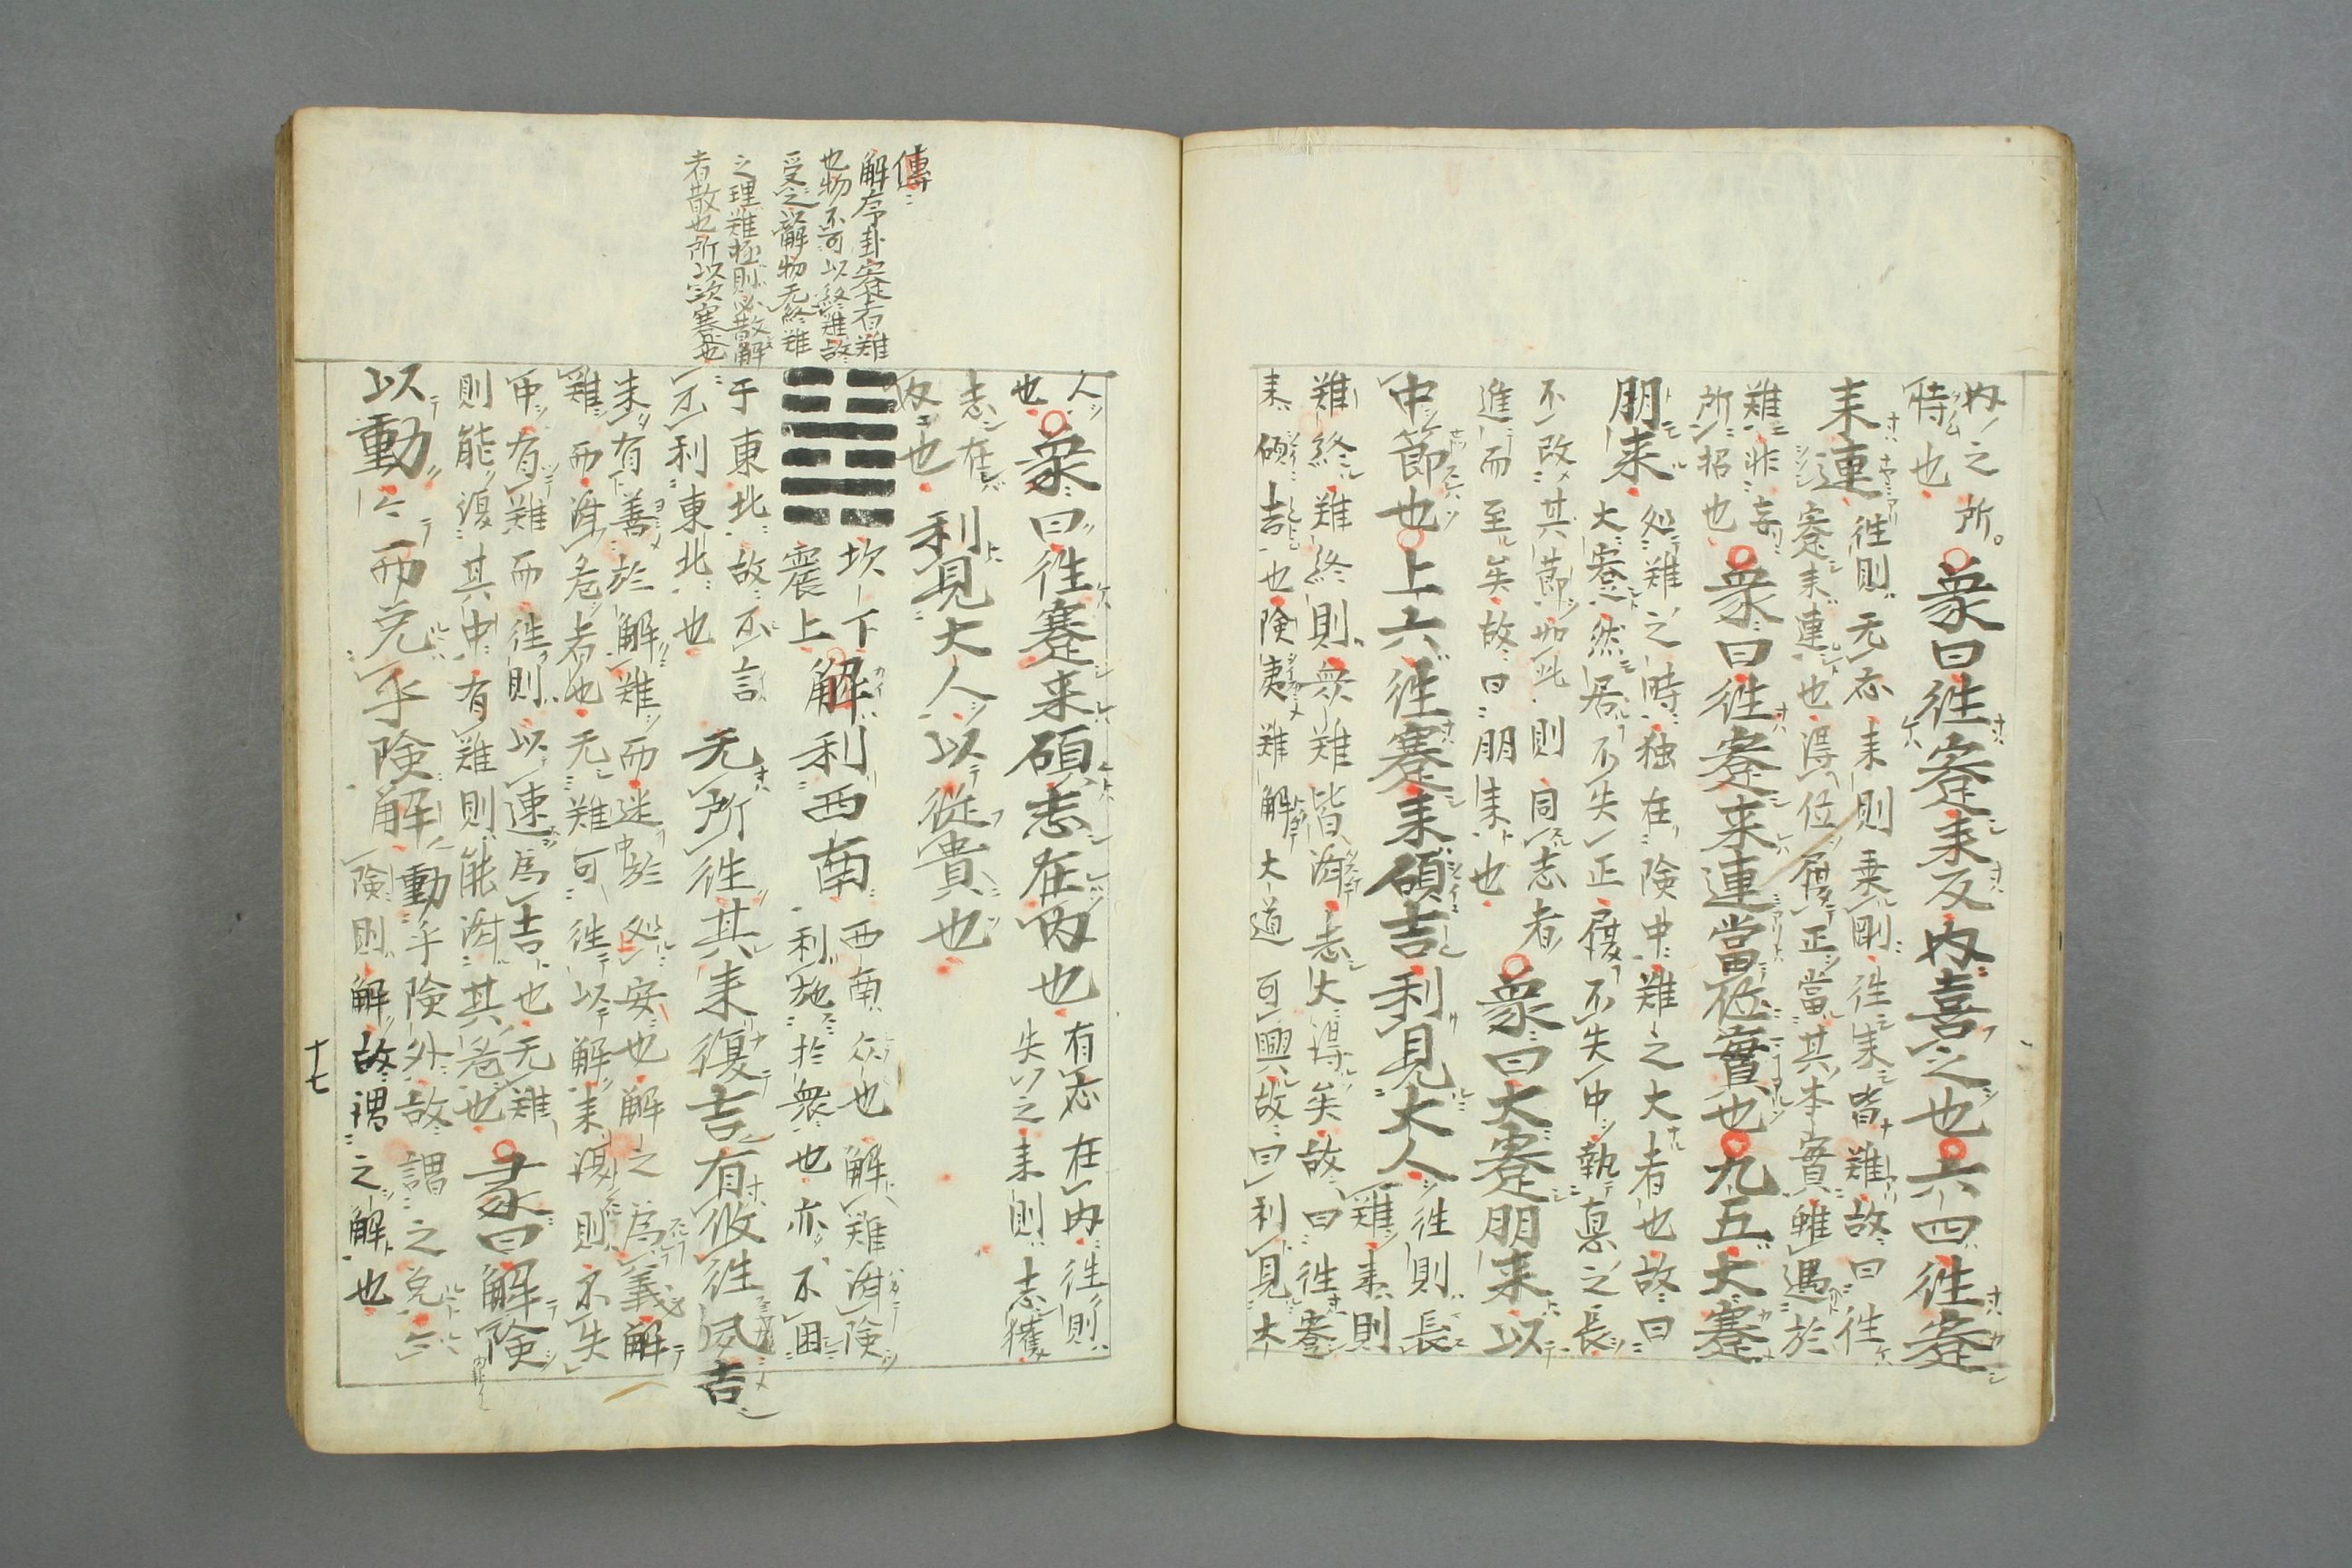 内之所
恃也
象曰往蹇来反内喜之也六四往蹇
来連
往則无応来則乗剛往来皆難故曰往
蹇来連也得位履正當其本實雖遇於
難非妄
所招也
象曰往蹇来連當位實也九五大蹇
朋来
処難之時独在険中難之大者也故曰
大蹇然居不失正履不失中執悳之長
不改其節如此則同志者
進而至矣故曰朋来也
象曰大蹇朋来以
中節也上六往蹇来碩吉利見大人
往則長
難来則
難終難終則衆難皆済志大得矣故曰往蹇
来碩吉也険夷難解大道可興故曰利見大
人
也
象曰往蹇来碩志在内也
有応在内往則
失之来則志獲
志在
内也
利見大人以従貴也
傳
解序卦蹇者難
也物不可以終難故
受之解物无終難
之理難極則必散解
者散也所以次蹇也
坎下
震上
解利西南
西南衆也解難済険
利施於衆也亦不困
于東北故不言
不利東北也
无所往其来復吉有攸往夙吉
未有善於解難而迷於処安也解之為義解
難而済危者也无難可往以解来復則不失
中有難而往則以速為吉也无難
則能復其中有難則能済其危也
彖曰解険
以動動而免乎険解
動乎険外故謂之免免
険則解故謂之解也
十七